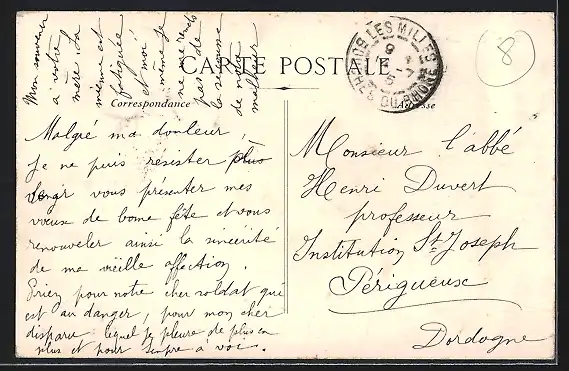 Mon souvenir
à votre
mère. La
mienne est
fatiguée
et moi
même je
ne me rends
pas de
la secousse
de notre
malheur
CARTE POSTALE
Correspondance
Adresse
LES MILLES
BOUCHES DU RHONE
8
Malgré ma douleur
je ne puis résister plus
longr vous présenter mes
vœux de bonne fête et vous
renouveler ainsi la sincérité
de ma vieille affection.
Priez pour notre cher soldat qui
est au danger, pour mon cher
disparu lequel je pleure de plus en
plus et pour Senpre à voir.
Monsieur l'abbé
Henri Duvert
professeur
Institution St. Joseph
Périgueux
Dordogne